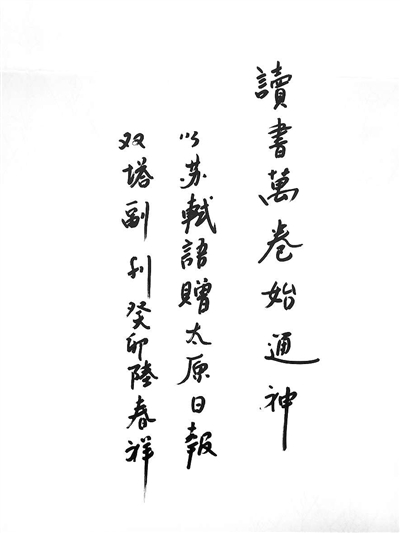 讀書萬卷始通神
以苏軾語贈太原日報
双塔副刊癸卯陸春祥